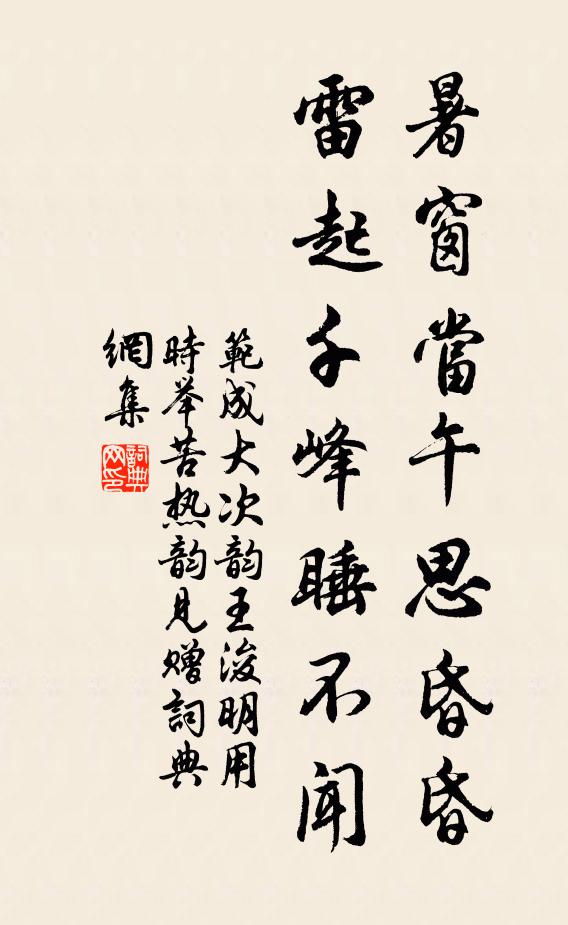 暑窗當午思昏昏
雷起千峰睡不聞
範成大次韵王浚明用
時举苦热韵見赠詞典
網集
詞典網印